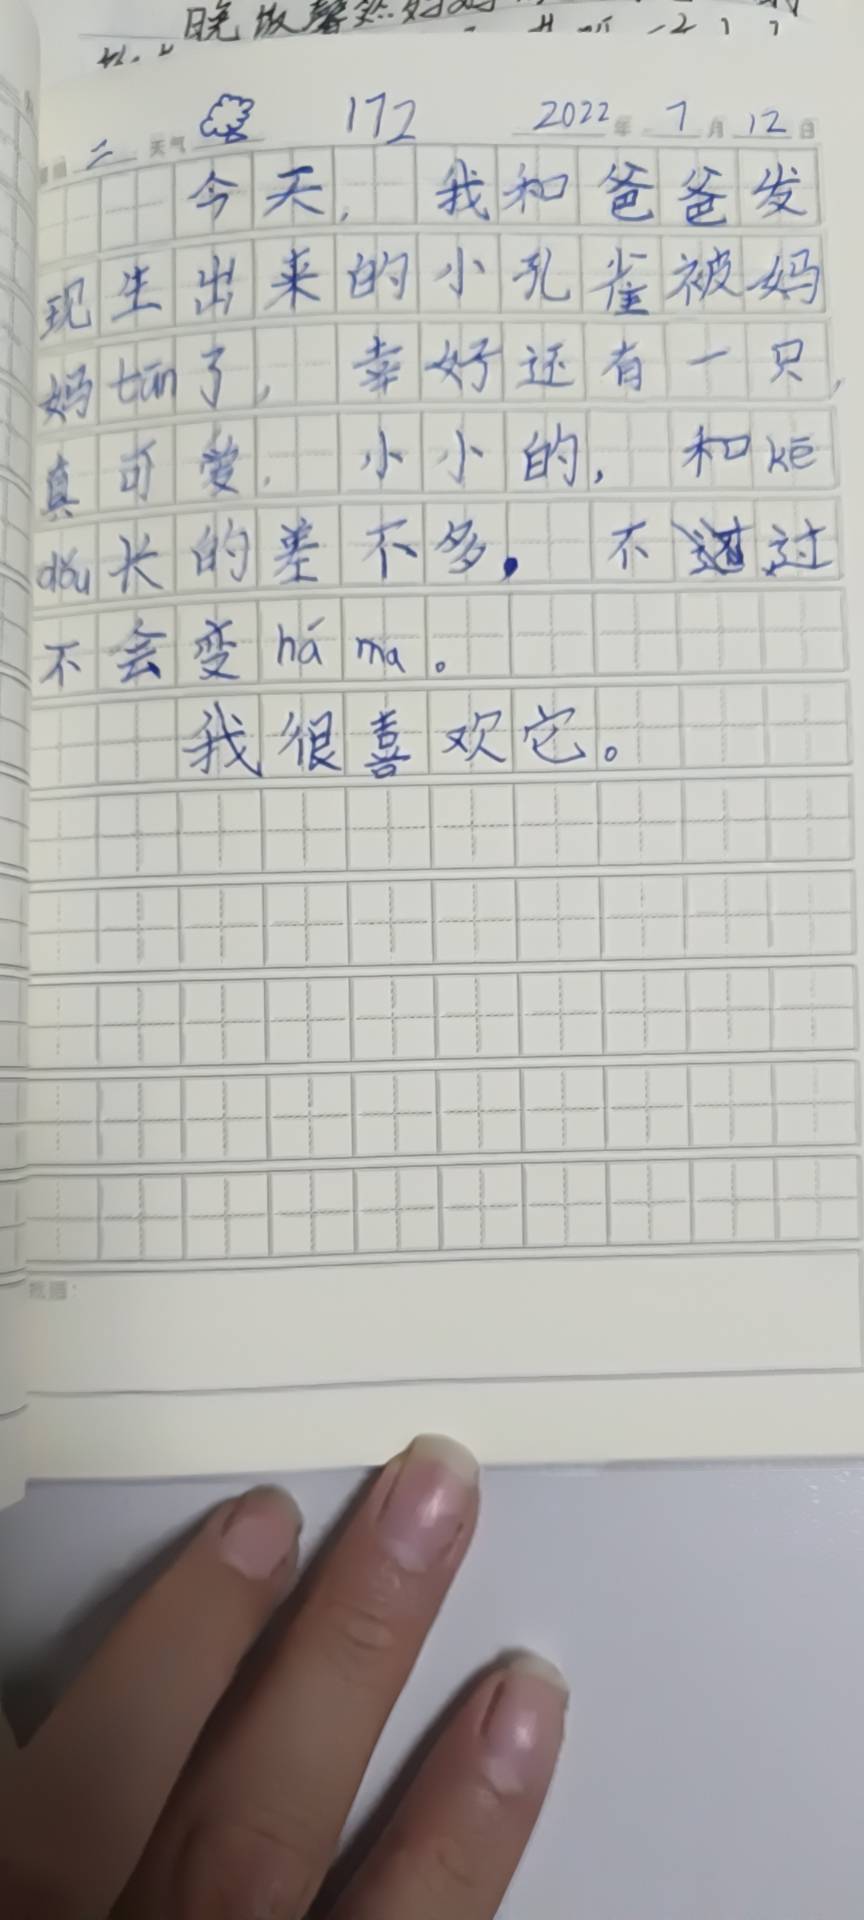 晚饭
二 天气 172 2022年 7月 12日
今天，我和爸爸发
现生出来的小孔雀被妈
妈tūn了，幸好还有一只，
真可爱，小小的，和kē
dǒu长的差不多，不过
不会变há ma。
我很喜欢它。